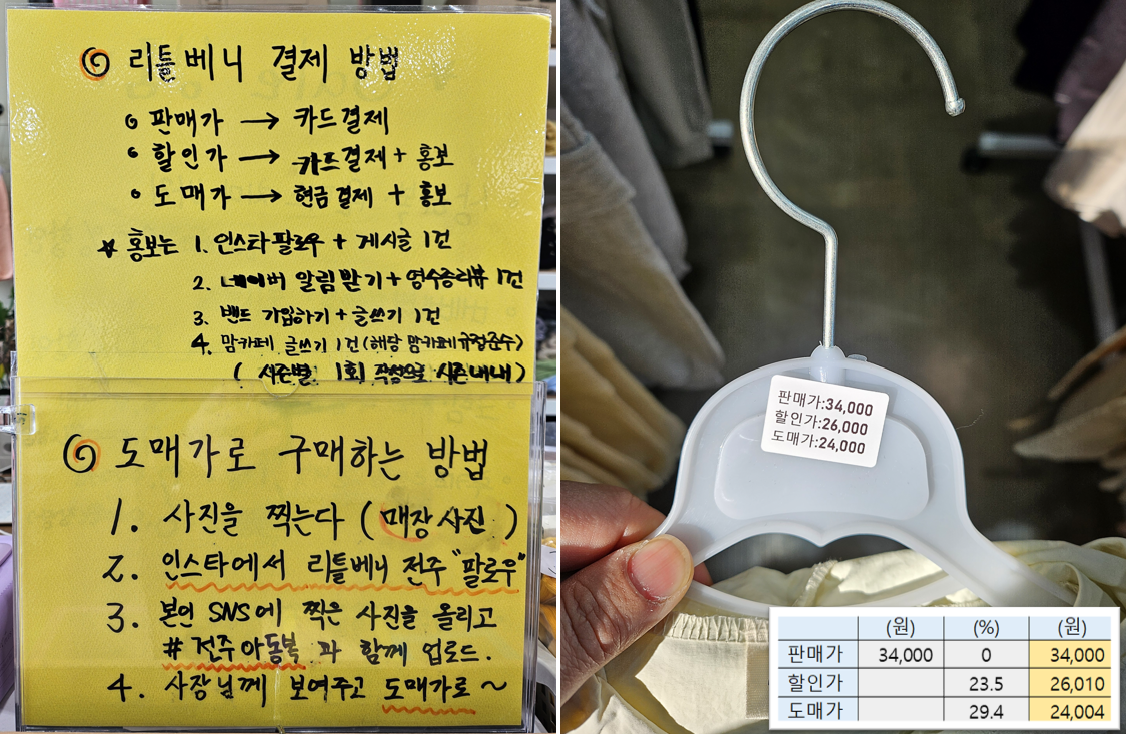 리틀베니 결제 방법
판매가 → 카드결제
할인가 → 카드결제 + 홍보
도매가 → 현금결제 + 홍보
☆ 홍보는 1. 인스타팔로우 + 게시글 1건
2. 네이버 알림받기 + 영수증리뷰 1건
3. 밴드 가입하기 + 글쓰기 1건
4. 맘카페 글쓰기 1건 (해당 맘카페규정준수)
( 시즌별 1회 작성으로 시즌내내 )
도매가로 구매하는 방법
1. 사진을 찍는다 ( 매장사진 )
2. 인스타에서 리틀베니 전주 "팔로우"
3. 본인 SNS에 찍은 사진을 올리고
# 전주아동복 과 함께 업로드.
4. 사장님께 보여주고 도매가로 ~
판매가:34,000
할인가:26,000
도매가:24,000
(원) (%) (원)
판매가 34,000 0 34,000
할인가 23.5 26,010
도매가 29.4 24,004